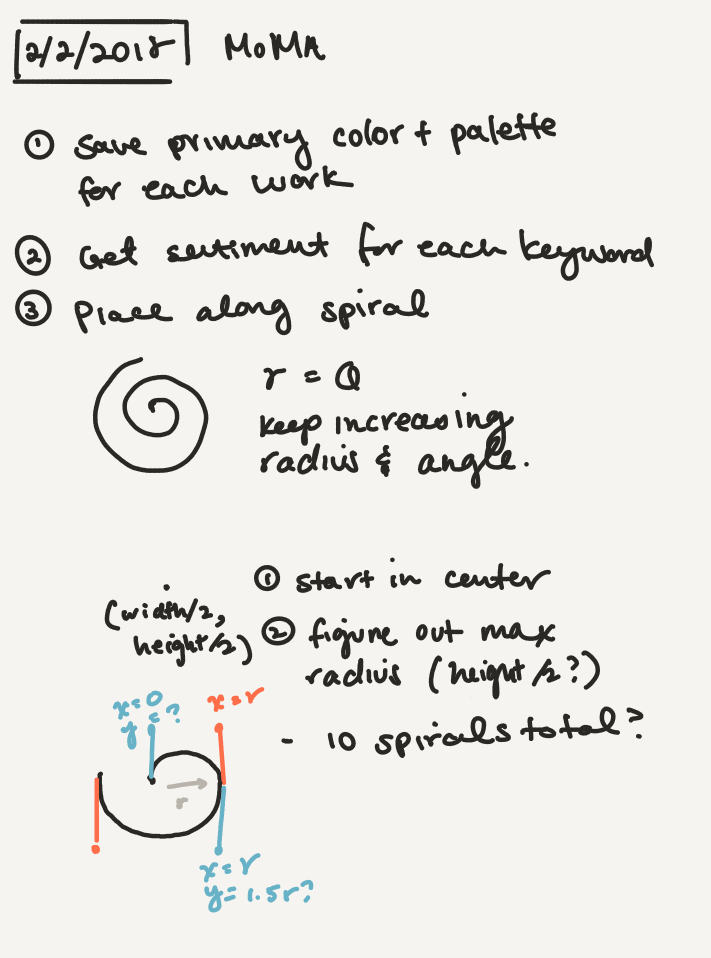 2/2/2018 MoMA
① save primary color + palette
for each work
② Get sentiment for each keyword
③ Place along spiral
r = θ
keep increasing
radius & angle.
① start in center
(width/2,
height/2)
② figure out max
radius (height/2?)
- 10 spirals total?
x=0
y=?
x=r
r
x=r
y=1.5r?